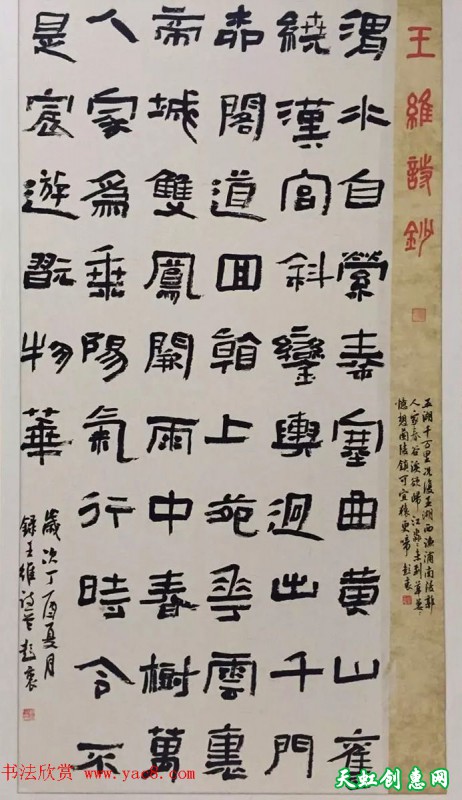 王維詩鈔
五湖千万里况復五湖西漁浦南陵郭
人家春谷溪欲歸江淼淼未到草萋萋
憶想蘭陵鎮可宜猿更啼
渭水自縈秦塞曲黄山舊
繞漢宮斜鑾輿迥出千門
柳閣道回看上苑花雲裏
帝城雙鳳闕雨中春樹萬
人家爲乗陽氣行時令不
是宸遊翫物華
歲次丁酉夏月
錄王維詩
书法欣赏 www.yac8.com
天虹创惠网